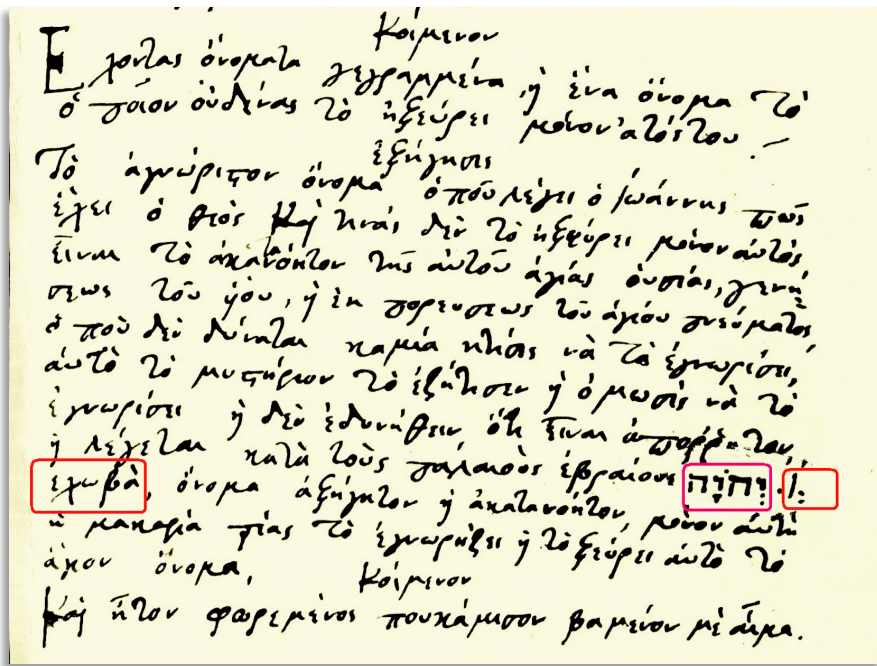 Κοίμενον
Εχοντας ὀνόματα γεγραμμένα, ἡ ἕνα ὄνομα τὸ
ὁ ποῖον οὐδένας τὸ ἠξεύρει μόνον ἀτόςτου
ἐξήγησις
Τὸ ἀγνώριστον ὄνομα ὁποῦ λέγει ὁ Ιωάννης πῶς
ἔχει ὁ θεὸς Καὶ τινάς δὲν τὸ ἠξεύρει μόνον αὐτός
εἶναι τὸ ἀκατανόητον τῆς αὐτοῦ ἁγίας οὐσίας, γενή
σεως τοῦ ὑοῦ, ἡ ἐκ πορεύσεως τοῦ ἁγίου πνεύματος
ὁ ποῦ δὲν δύναται καμία κτήσις νὰ τὸ ἐγνωρίσει,
αὐτὸ τὸ μυστήριον τὸ ἐζήτησεν ἡ ὁ μωσὶς νὰ τὸ
ἐγνωρίσει ἡ δὲν ἐδυνήθειν ὅτι εἶναι ἀπόρρητον,
ἡ λέγεται κατὰ τοὺς παλαιοὺς ἑβραίους יְהֹוָה . Ι
εχωβὰ, ὄνομα ἀξήγητον ἡ ἀκατανόητον, μόνον αὐτὴ
ἡ μακαρία τρίας τὸ ἐγνωρίζει ἡ τὸ ξεύρει αὐτὸ τὸ
ἅγιον ὄνομα,
Κοίμενον
Καὶ ἦτον φορεμένος πουκάμισον βαμένον μὲ αἷμα.